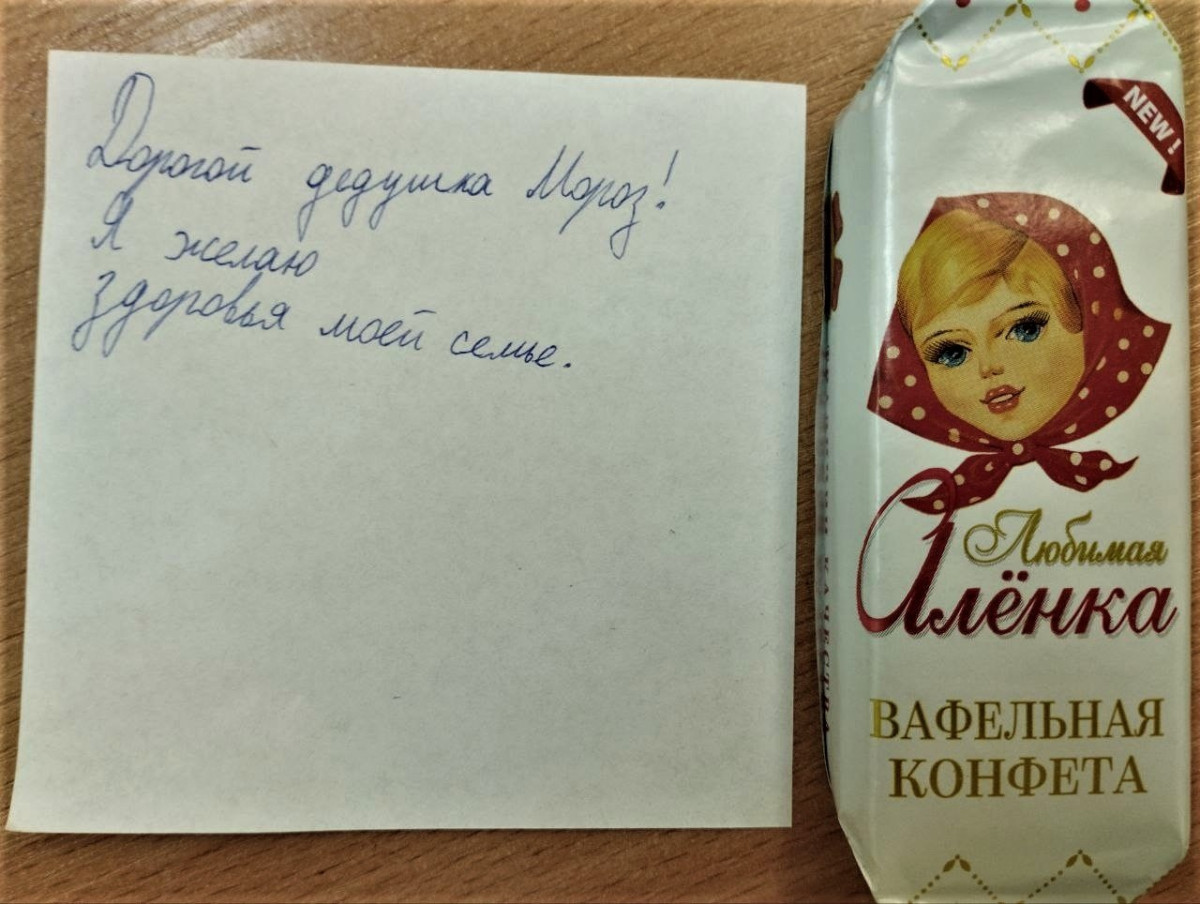 Дорогой дедушка Мороз!
Я желаю
здоровья моей семье.
NEW!
Любимая
Алёнка
ВАФЕЛЬНАЯ
КОНФЕТА
КАЧЕСТВА